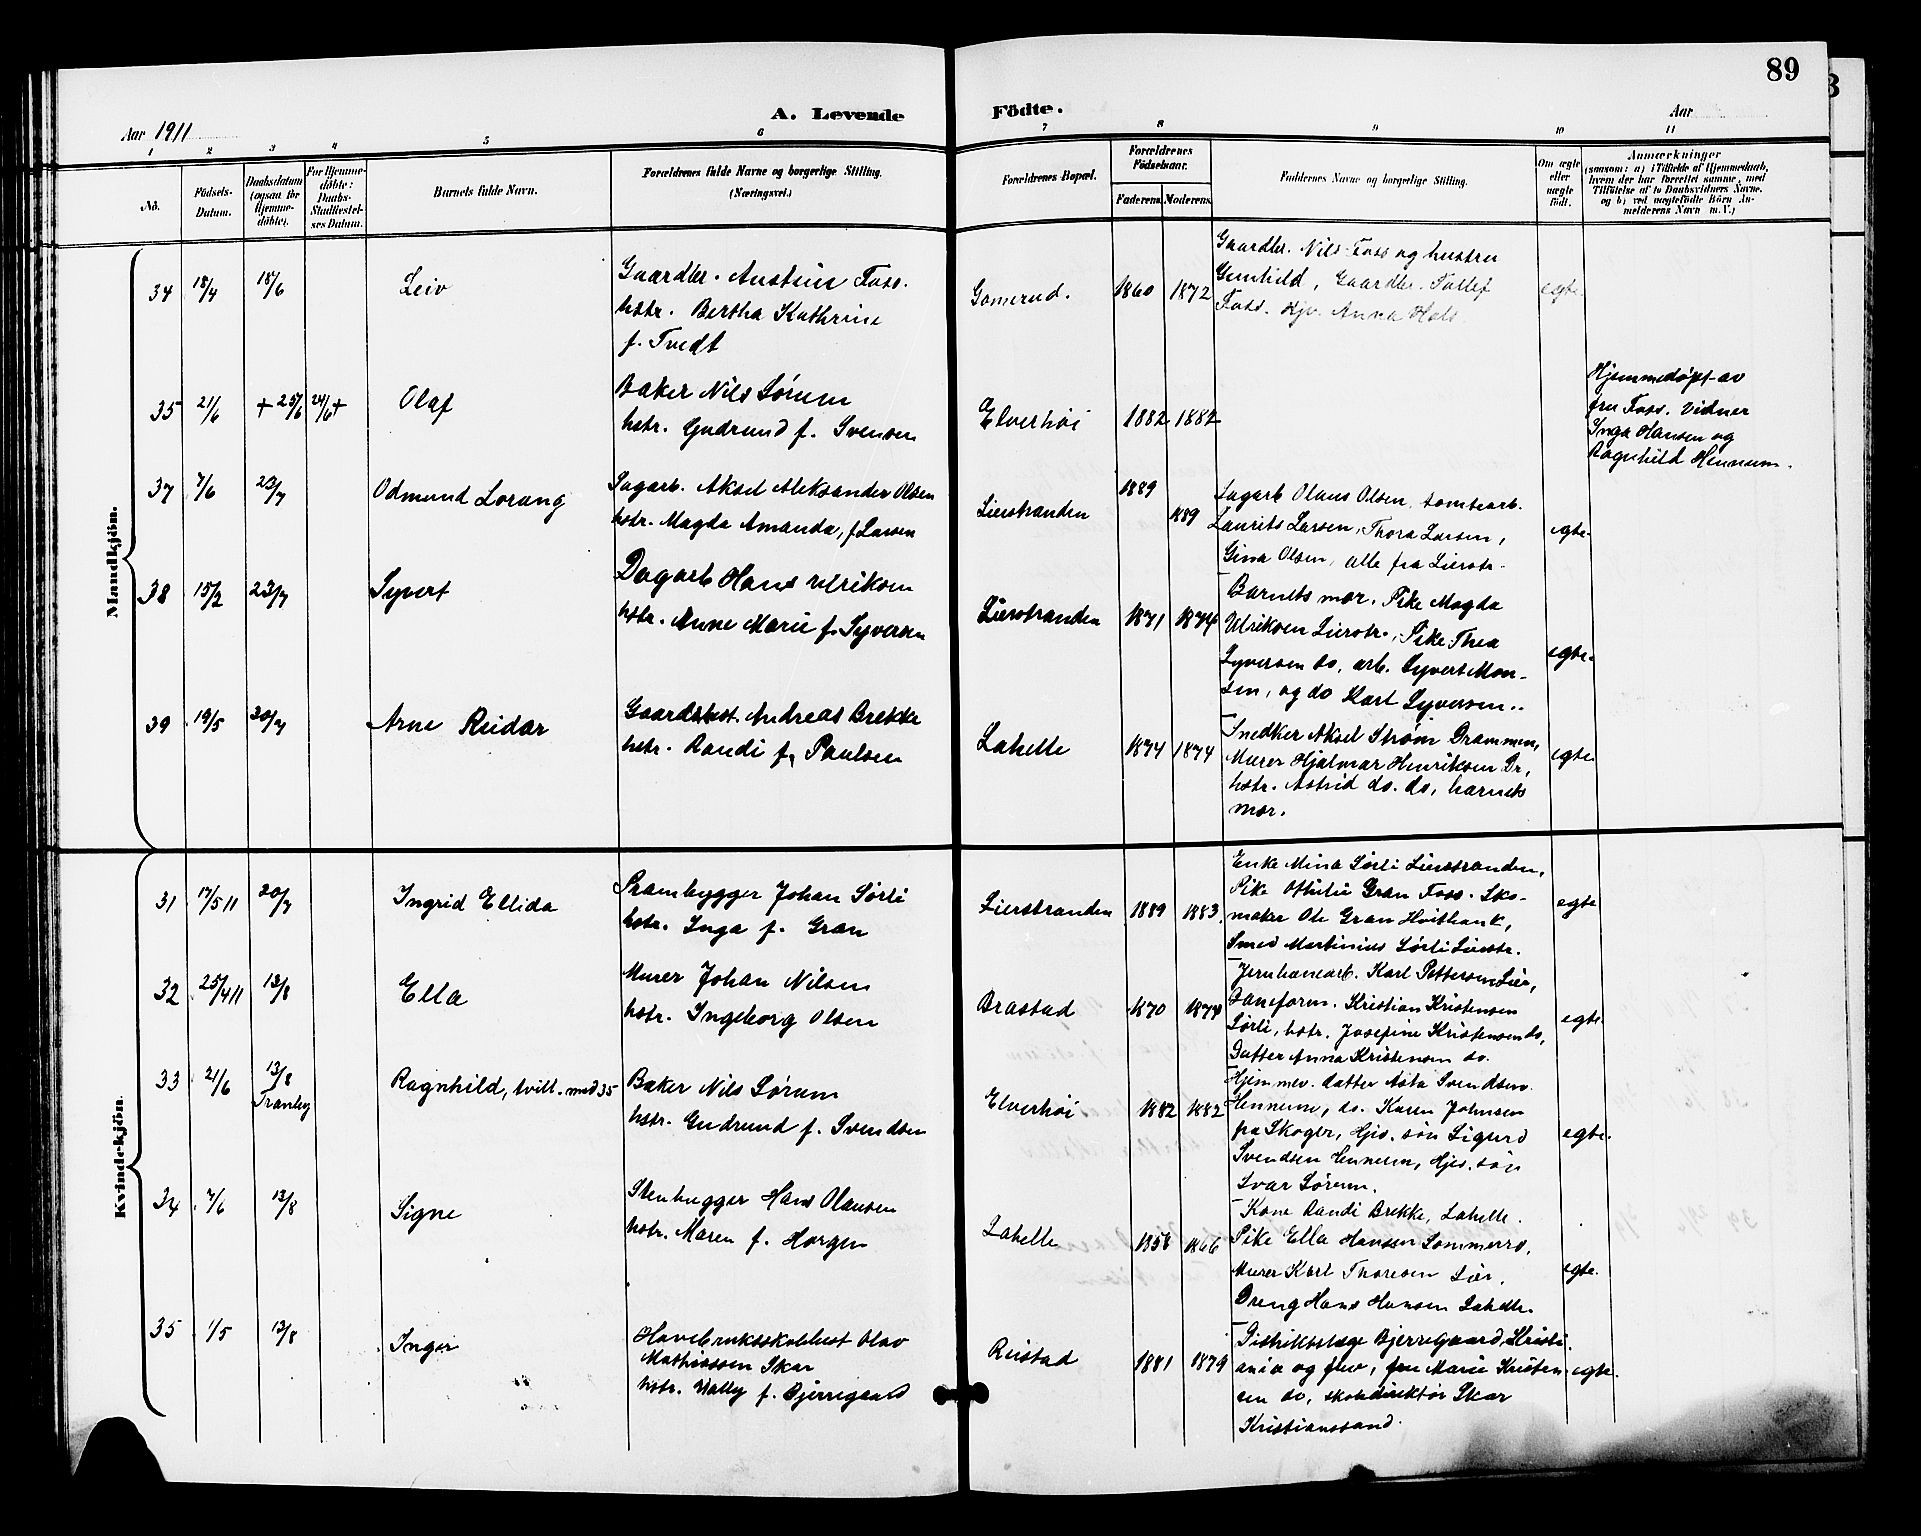 89
Aar 1911
A. Levende Födte.
Aar
1 2 3 4 5 6 7 8 9 10 11
No.
Födsels-Datum.
Daabsdatum (ogsaa for Hjemmedöbte).
For Hjemmedöbte: Daabs-Stadfæstelses Datum.
Barnets fulde Navn.
Forældrenes fulde Navne og borgerlige Stilling. (Næringsvei.)
Forældrenes Bopæl.
Forældrenes Födselsaar.
Faderens. Moderens.
Faddernes Navne og borgerlige Stilling.
Om ægte eller uægte födt.
Anmærkninger
(saasom: a) i Tilfælde af Hjemmedaab, hvem der har forrettet samme, med Tilföielse af to Daabsvidners Navne, og b) ved uægtefödte Börn Anmelderens Navn m. V.)
Mandkjön.
34 18/4 18/6 Leiv
Gaardbr. Austein Foss.
hstr. Bertha Kathrine
f. Tvedt
Gomerud. 1860 1872
Gaardbr. Nils Foss og hustru
Gunhild, Gaardbr. Tollef
Foss. Hjv. Anna Hals
egte.
35 21/6 + 25/6 24/6 + Olaf
Baker Nils Sørum
hstr. Gudrund f. Svensen
Elverhøi 1882 1882
Hjemmedøpt av
fru Foss. Vidner
Inga Hansen og
Ragnhild Hennum.
37 7/6 23/7 Odmund Lorang
Sagarb. Aksel Aleksander Olsen
hstr. Magda Amanda, f. Larsen
Lierstranden 1889 1889
Sagarb Olaus Olsen, tomtearb.
Laurits Larsen, Thora Larsen,
Gina Olsen, alle fra Lierstr.
egte.
38 15/2 23/7 Syvert
Dagarb Hans Ulriksen
hstr. Anne Marie f. Syversen
Lierstranden 1871 1874
Barnets mor. Pike Magda
Ulriksen Lierstr., Pike Thea
Syversen do, arb. Syvert Mon-
sen, og do Karl Syversen..
egte.
39 19/5 30/7 Arne Reidar
Gaardsbest. Andreas Brekke
hstr. Randi f. Paulsen
Lahelle 1874 1874
Snedker Aksel Strøm Drammen,
Murer Hjalmar Henriksen Dr,
hstr. Astrid do. do, barnets
mor.
egte
Kvindekjön.
31 17/5 11 30/7 Ingrid Ellida
Prambygger Johan Sørli
hstr. Inga f. Gran
Lierstranden 1889 1883.
Enke Mina Sørli Lierstranden,
Pike Othilie Gran Foss. Sko-
maker Ole Gran Hvitbank,
Smed Martinius Sørli Lierstr.
egte
32 25/4 11 13/8 Ella
Murer Johan Nilsen
hstr. Ingeborg Olsen
Brastad 1870 1874
Jernbanearb. Karl Pettersen Lier,
Baneform. Kristian Kristensen
Sørli, hstr. Josefine Kristensen do,
Datter Anna Kristensen do.
egte.
33 21/6 13/8 Tranby Ragnhild, tvill. med 35
Baker Nils Sørum
hstr. Gudrund f. Svendsen
Elverhøi 1882 1882
Hjemmev. datter Asta Svendsen
Hennum, do. Karen Johnsen
fra Skoger, Hjv. søn Sigurd
Svendsen Hennum, Hjv. søn
Ivar Sørum.
egte.
34 7/6 13/8 Signe
Stenhugger Hans Olausen
hstr. Maren f. Horgen
Lahelle 1858 1866
Kone Randi Brekke, Lahelle.
Pike Ella Hansen Sommerro,
Murer Karl Thoresen Lier,
Dreng Hans Hansen Lahelle.
egte.
35 1/5 13/8 Inger
Havebruksskolebest Olav
Mathiassen Skar
hstr. Vally f. Bjerregaard
Reistad 1881 1879
Distriktslæge Bjerregaard, Kristi-
ania og frue, fru Marie Kristen
sen do, skoledirektør Skar
Kristianssand.
egte.